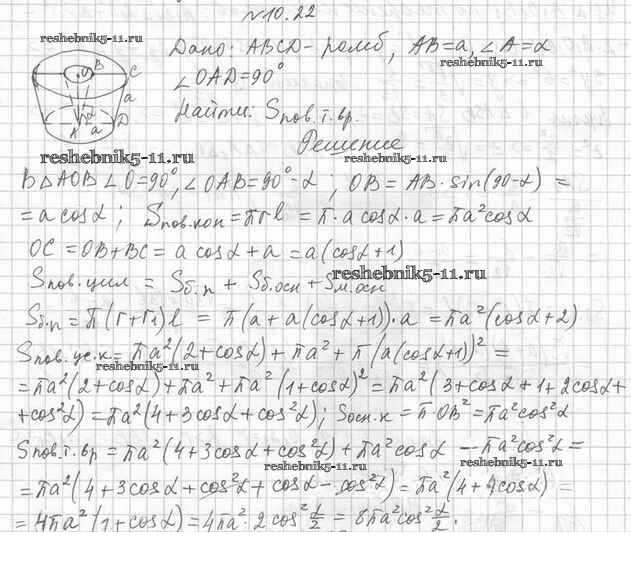 №10.22
reshebnik5-11.ru
Дано: ABCD - ромб, AB=a, ∠A=α
∠OAD=90°
Найти: Sпов.т.вр.
B
O
C
a
α
A
a
D
reshebnik5-11.ru
Решение
reshebnik5-11.ru
В △AOB ∠O=90°, ∠OAB=90°-α ; OB = AB·sin(90-α) =
= a cosα ; Sпов.кон = πrl = π·a cosα·a = πa²cosα
OC = OB+BC = a cosα + a = a(cosα+1)
reshebnik5-11.ru
Sпов.цил = Sб.п + Sб.осн + Sм.осн
Sб.п = π(r+r₁)l = π(a+a(cosα+1))·a = πa²(cosα+2)
Sпов.ус.к = πa²(2+cosα) + πa² + π(a(cosα+1))² =
reshebnik5-11.ru
= πa²(2+cosα) + πa² + πa²(1+cosα)² = πa²(3+cosα+1+2cosα+
+cos²α) = πa²(4+3cosα+cos²α) ; Sосн.к = π·OB² = πa²cos²α
Sпов.т.вр = πa²(4+3cosα+cos²α) + πa²cosα - πa²cos²α =
reshebnik5-11.ru
reshebnik5-11.ru
= πa²(4+3cosα+cos²α+cosα-cos²α) = πa²(4+4cosα) =
= 4πa²(1+cosα) = 4πa²·2cos²α/2 = 8πa²cos²α/2.